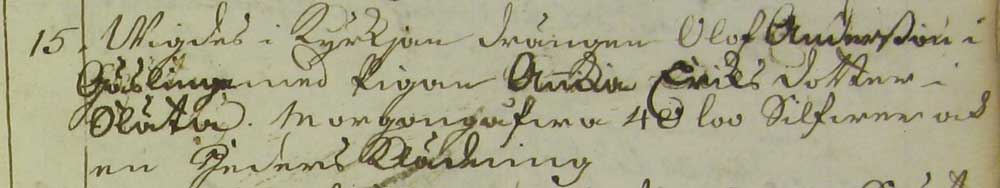 15. Wigdes i Kyrkjan drängen Olof Andersson i
Gäslinge med Pigan Anna Ericks dotter i
Slåta. Morgongåfwa 48 loo Silfwer och
en Heders Klädning